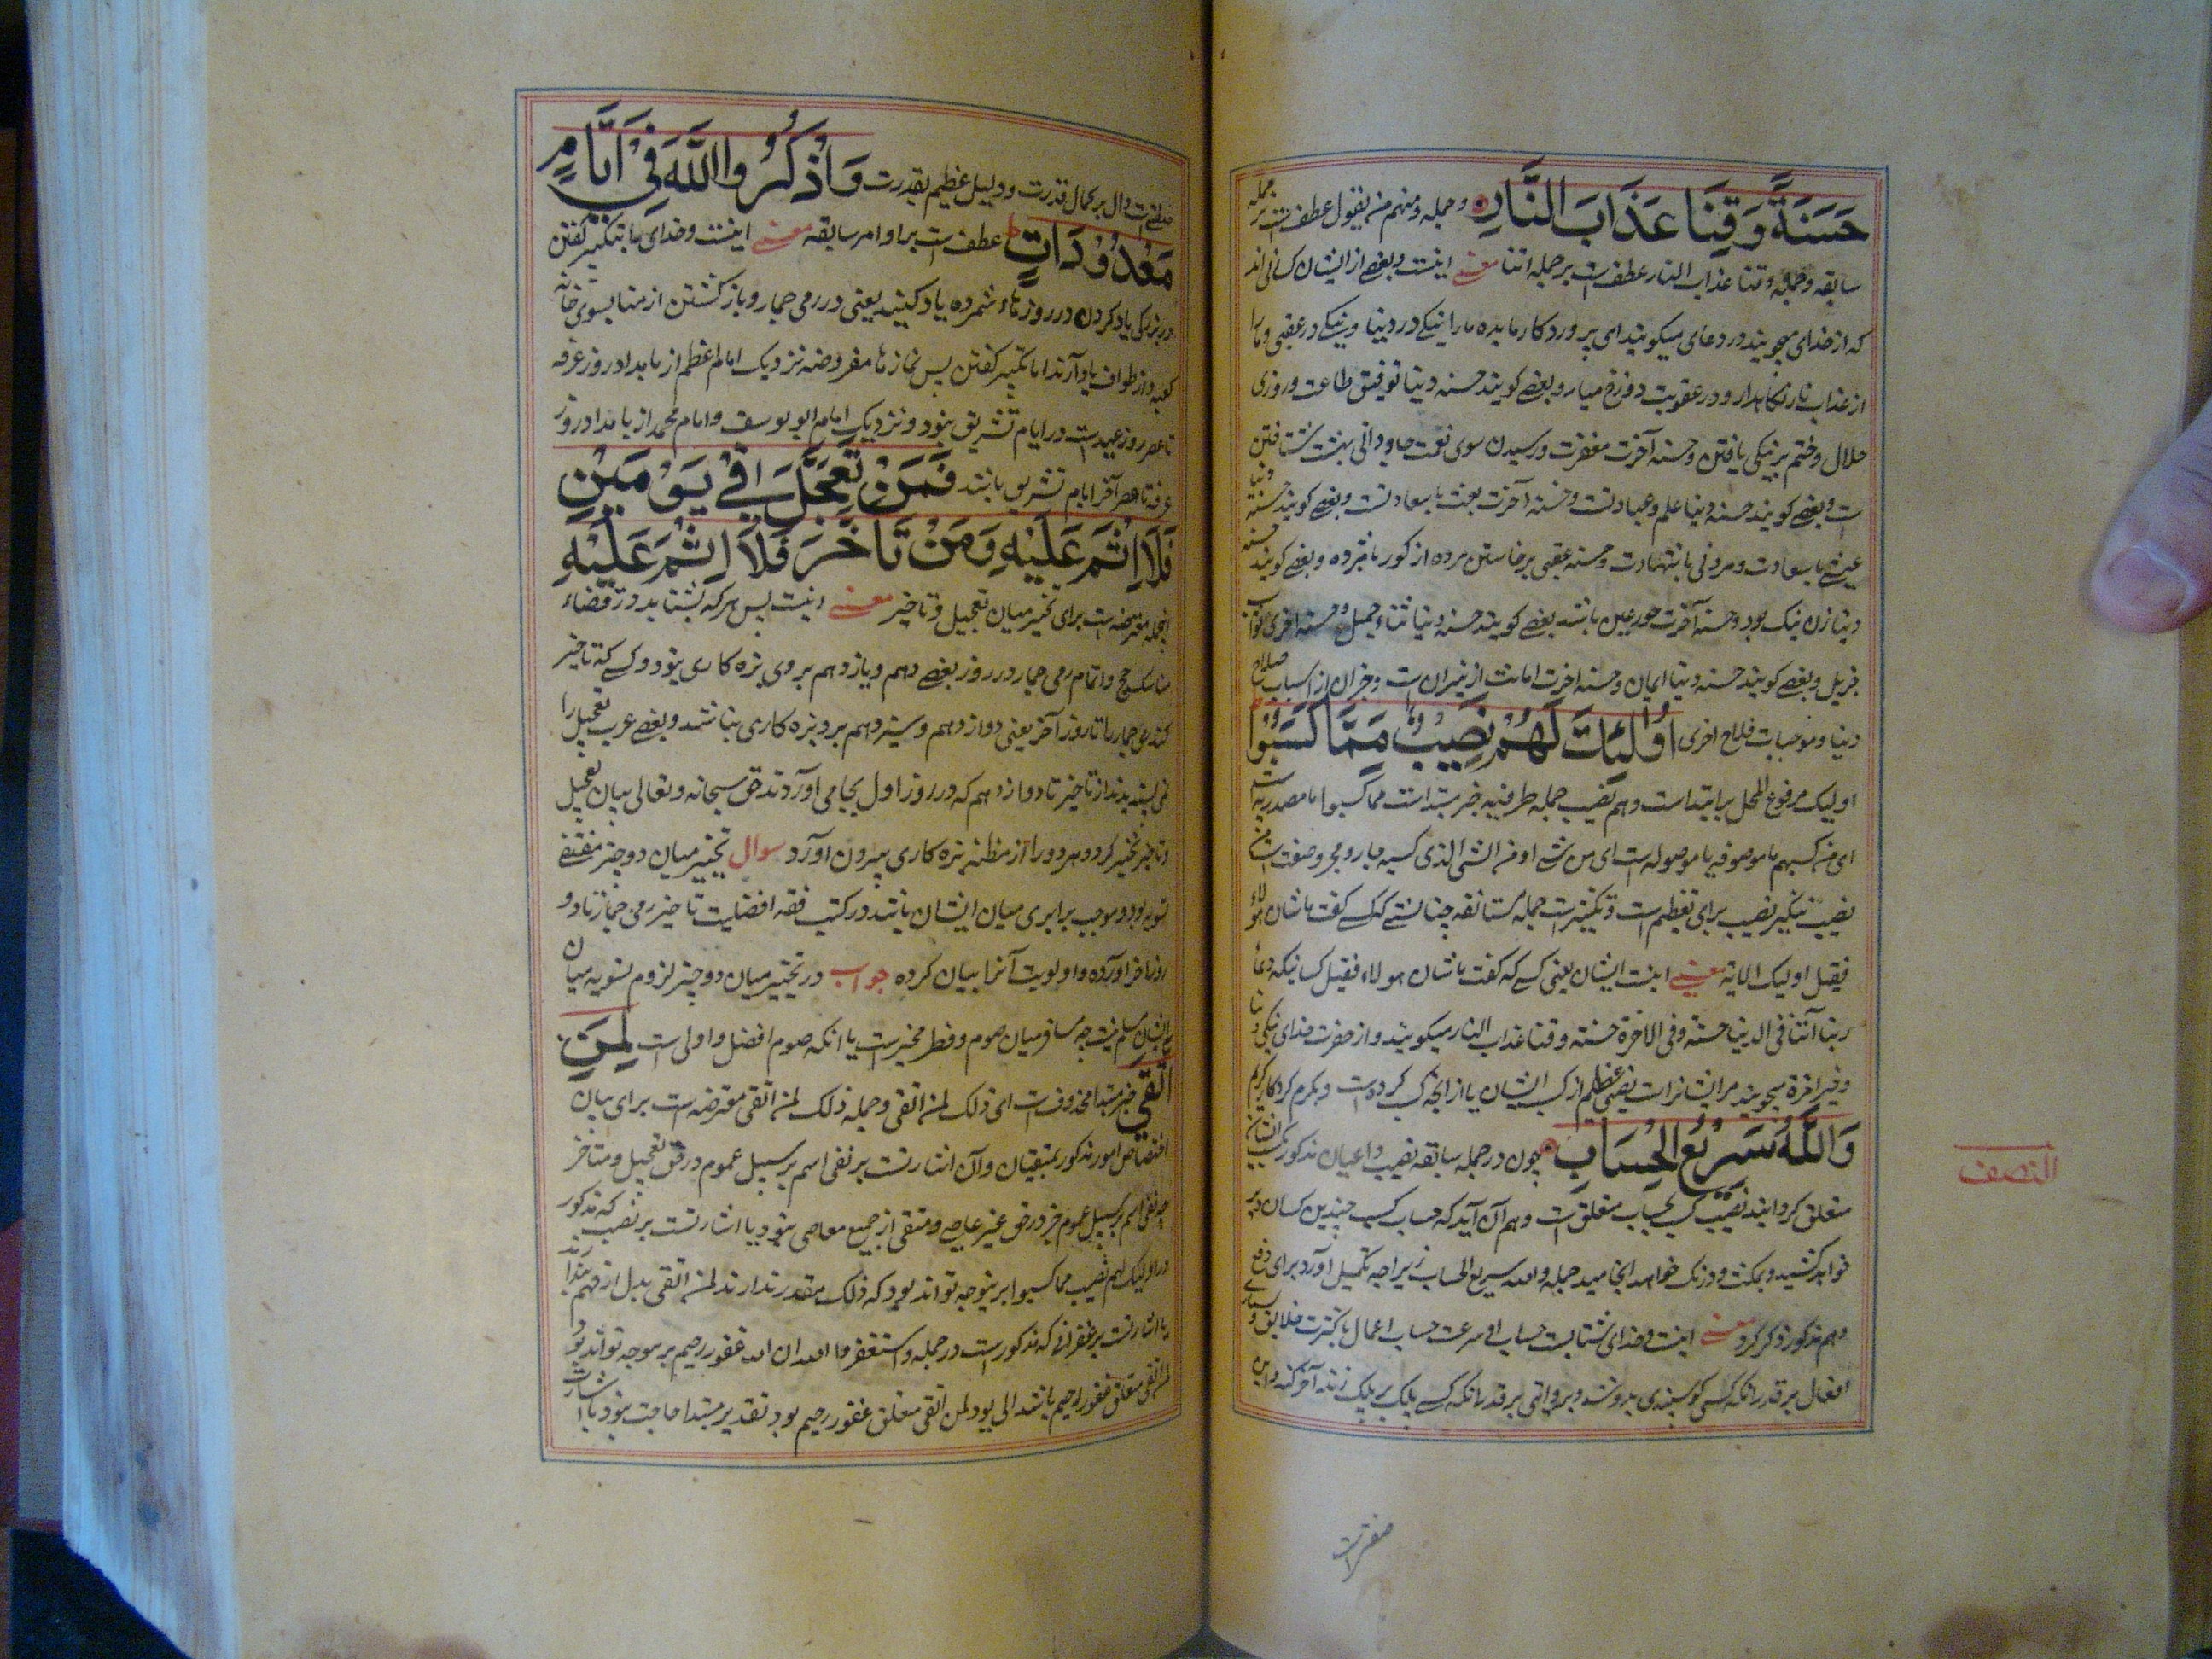 حَسَنَةً وَقِنَا عَذَابَ النَّارِ وجمله ومنهم من یقول عطف است بر جمله
سابقه وجمله وقنا عذاب النار عطف است بر جمله اتنا معنی اینست وبعضی از ایشان کسانی اند
که از خدای میجویند ودر دعای میکویند ای پروردکار ما بده مارا نیکی در دنیا ونیکی در عقبی ومارا
از عذاب نار نکاهدار ودر عقوبت دوزخ میار وبعضی کویند حسنه دنیا توفیق طاعت وروزی
حلال وختم بر نیکی یافتن وحسنه آخرت مغفرت ورسیدن سوی نعمت جاودانی بهشت شتافتن
است وبعضی کویند حسنه دنیا علم وعبادتست وحسنه آخرت بعث با سعادتست وبعضی کویند حسنه دنیا
عیشی با سعادت ومردنی با شهادت وحسنه عقبی برخاستن مرده از کور وبعضی کویند حسنه
دنیا زن نیک بود وحسنه آخرت حور عین باشد بعضی کویند حسنه دنیا ثناء جمیل وحسنه اخری ثواب
جزیل وبعضی کویند حسنه دنیا ایمان وحسنه اخرت امانت از نیران است وجز آن از اسباب صلاح
دنیا وموجبات فلاح اخری اُولٰئِكَ لَهُمْ نَصِيْبٌ مِمَّا كَسَبُوْا
اولیک مرفوع المحل بر ابتداست ولهم نصیب جمله ظرفیه خبر مبتداست مما کسبوا ما مصدریه است
ای من کسبهم یا موصوفه یا موصوله است ای من شی او من الشی الذی کسبوه وجار ومجرور صفت است
نصیب تنکیر نصیب برای تعظیم است جمله مستانفه چنانستی که کسی کفت ما شان هولاء
فقیل اولیک الایة معنی اینست ایشان یعنی کسی که کفت ما شان هولاء فقیل کسانیکه دعاء
ربنا آتنا فی الدنیا حسنة وفی الاخرة حسنة وقنا عذاب النار میکویند واز حضرت خدای نیکی دنیا
وخیر اخرة میجویند مر ایشانراست نصیبی عظیم از کسب ایشان یا از انچه کسب کرده است وبکرم کردکار کریم
وَاللّٰهُ سَرِيْعُ الْحِسَابِ چون در جمله سابقه نصیب داعیان مذکور بکسب ایشان
متعلق کردانید نصیب کسب بحساب متعلق است وهم آن آید که حساب کسب چندین کسان دیر
خواهد کشید وبمکث ودرنک خواهد انجامید جمله والله سریع الحساب تکمیل آورد برای دفع
وهم مذکور ذکر کرد معنی اینست وخدای شتابست حساب او سرعت حساب اعمال با کثرت خلایق وبسیاری
افعال بر قدر انکه کسی کوسپندی بدوشد
النصف
وَاذْكُرُوا اللّٰهَ فِيْ اَيَّامٍ
دال بر کمال قدرت ودلیل عظیم بقدرت
مَعْدُوْدَاتٍ عطف است بر اوامر سابقه معنی اینست وخدای را بتکبیر کفتن
در بزرکی یاد کردن در روزهاء شمرده یاد کنید یعنی در رمی جمار وباز کشتن از منا بسوی خانه
کعبه واز طواف یاد آرند اما تکبیر کفتن پس نمازها مفروضه نزدیک امام اعظم از بامداد روز عرفه
تا عصر روز عید است در ایام تشریق نبود ونزدیک امام ابو یوسف وامام محمد از بامداد روز
عرفه تا عصر آخر ایام تشریق باشد فَمَنْ تَعَجَّلَ فِيْ يَوْمَيْنِ
فَلَا اِثْمَ عَلَيْهِ وَمَنْ تَاَخَّرَ فَلَا اِثْمَ عَلَيْهِ
معترضه است برای تخییر میان تعجیل وتاخیر معنی اینست پس هر که بشتابد در قضاء
مناسک حج واتمام رمی جمار در روز بعضی دهم ویازدهم بر وی بزه کاری نبود وکسی که تاخیر
کند رمی جمار را تا روز آخر یعنی دوازدهم وسیزدهم برو بزه کاری نباشد وبعضی عرب تعجیل را
نمی پسندیدند از تاخیر تا دوازدهم که در روز اول بجا می آوردند حق سبحانه وتعالی بیان تعجیل
وتاخیر تخییر کرد وهر دو را از مظنه بزه کاری بیرون آورد سوال تخییر میان دو چیز مقتضی
تسویه بود وموجب برابری میان ایشان باشد ودر کتب فقه افضلیت تاخیر رمی جمار تا دو
روز اخر آورده واولویت آنرا بیان کرده جواب در تخییر میان دو چیز لزوم تسویه میان
ایشان مسلم نیست چه مسافر میان صوم وفطر مخیر است با انکه صوم افضل واولی است لِمَنِ
اتَّقٰى خبر مبتدا محذوف است ای ذلک لمن اتقی وجمله ذلک لمن اتقی معترضه است برای بیان
اختصاص امور مذکور بمتقیان وآن اشارتست بر نفی اسم بر سبیل عموم در حق تعجیل ومتاخر
چه نفی اثم بر سبیل عموم جز در حق غیر عاصی ومتقی از جمیع معاصی نبود یا اشارتست بر نصیب که مذکور
در اولیک لهم نصیب مما کسبوا برینوجه تواند بود که ذلک مقدر ندارند لمن اتقی بدل از لهم پندارند
یا اشارتست بر غفرانی که مذکور است در جمله واستغفروا الله ان الله غفور رحیم برینوجه تواند بود
لمن اتقی متعلق غفور رحیم باشد لمن اتقی متعلق غفور رحیم بود تقدیر مبتدا حاجت نبود یا اشارت